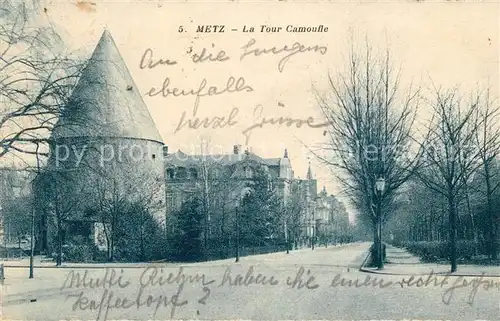 5. METZ - La Tour Camoufle
An die Jungens
ebenfalls
herzl. Grüsse
Mutti Riehm haben Sie einen recht
Kaffeetopf?